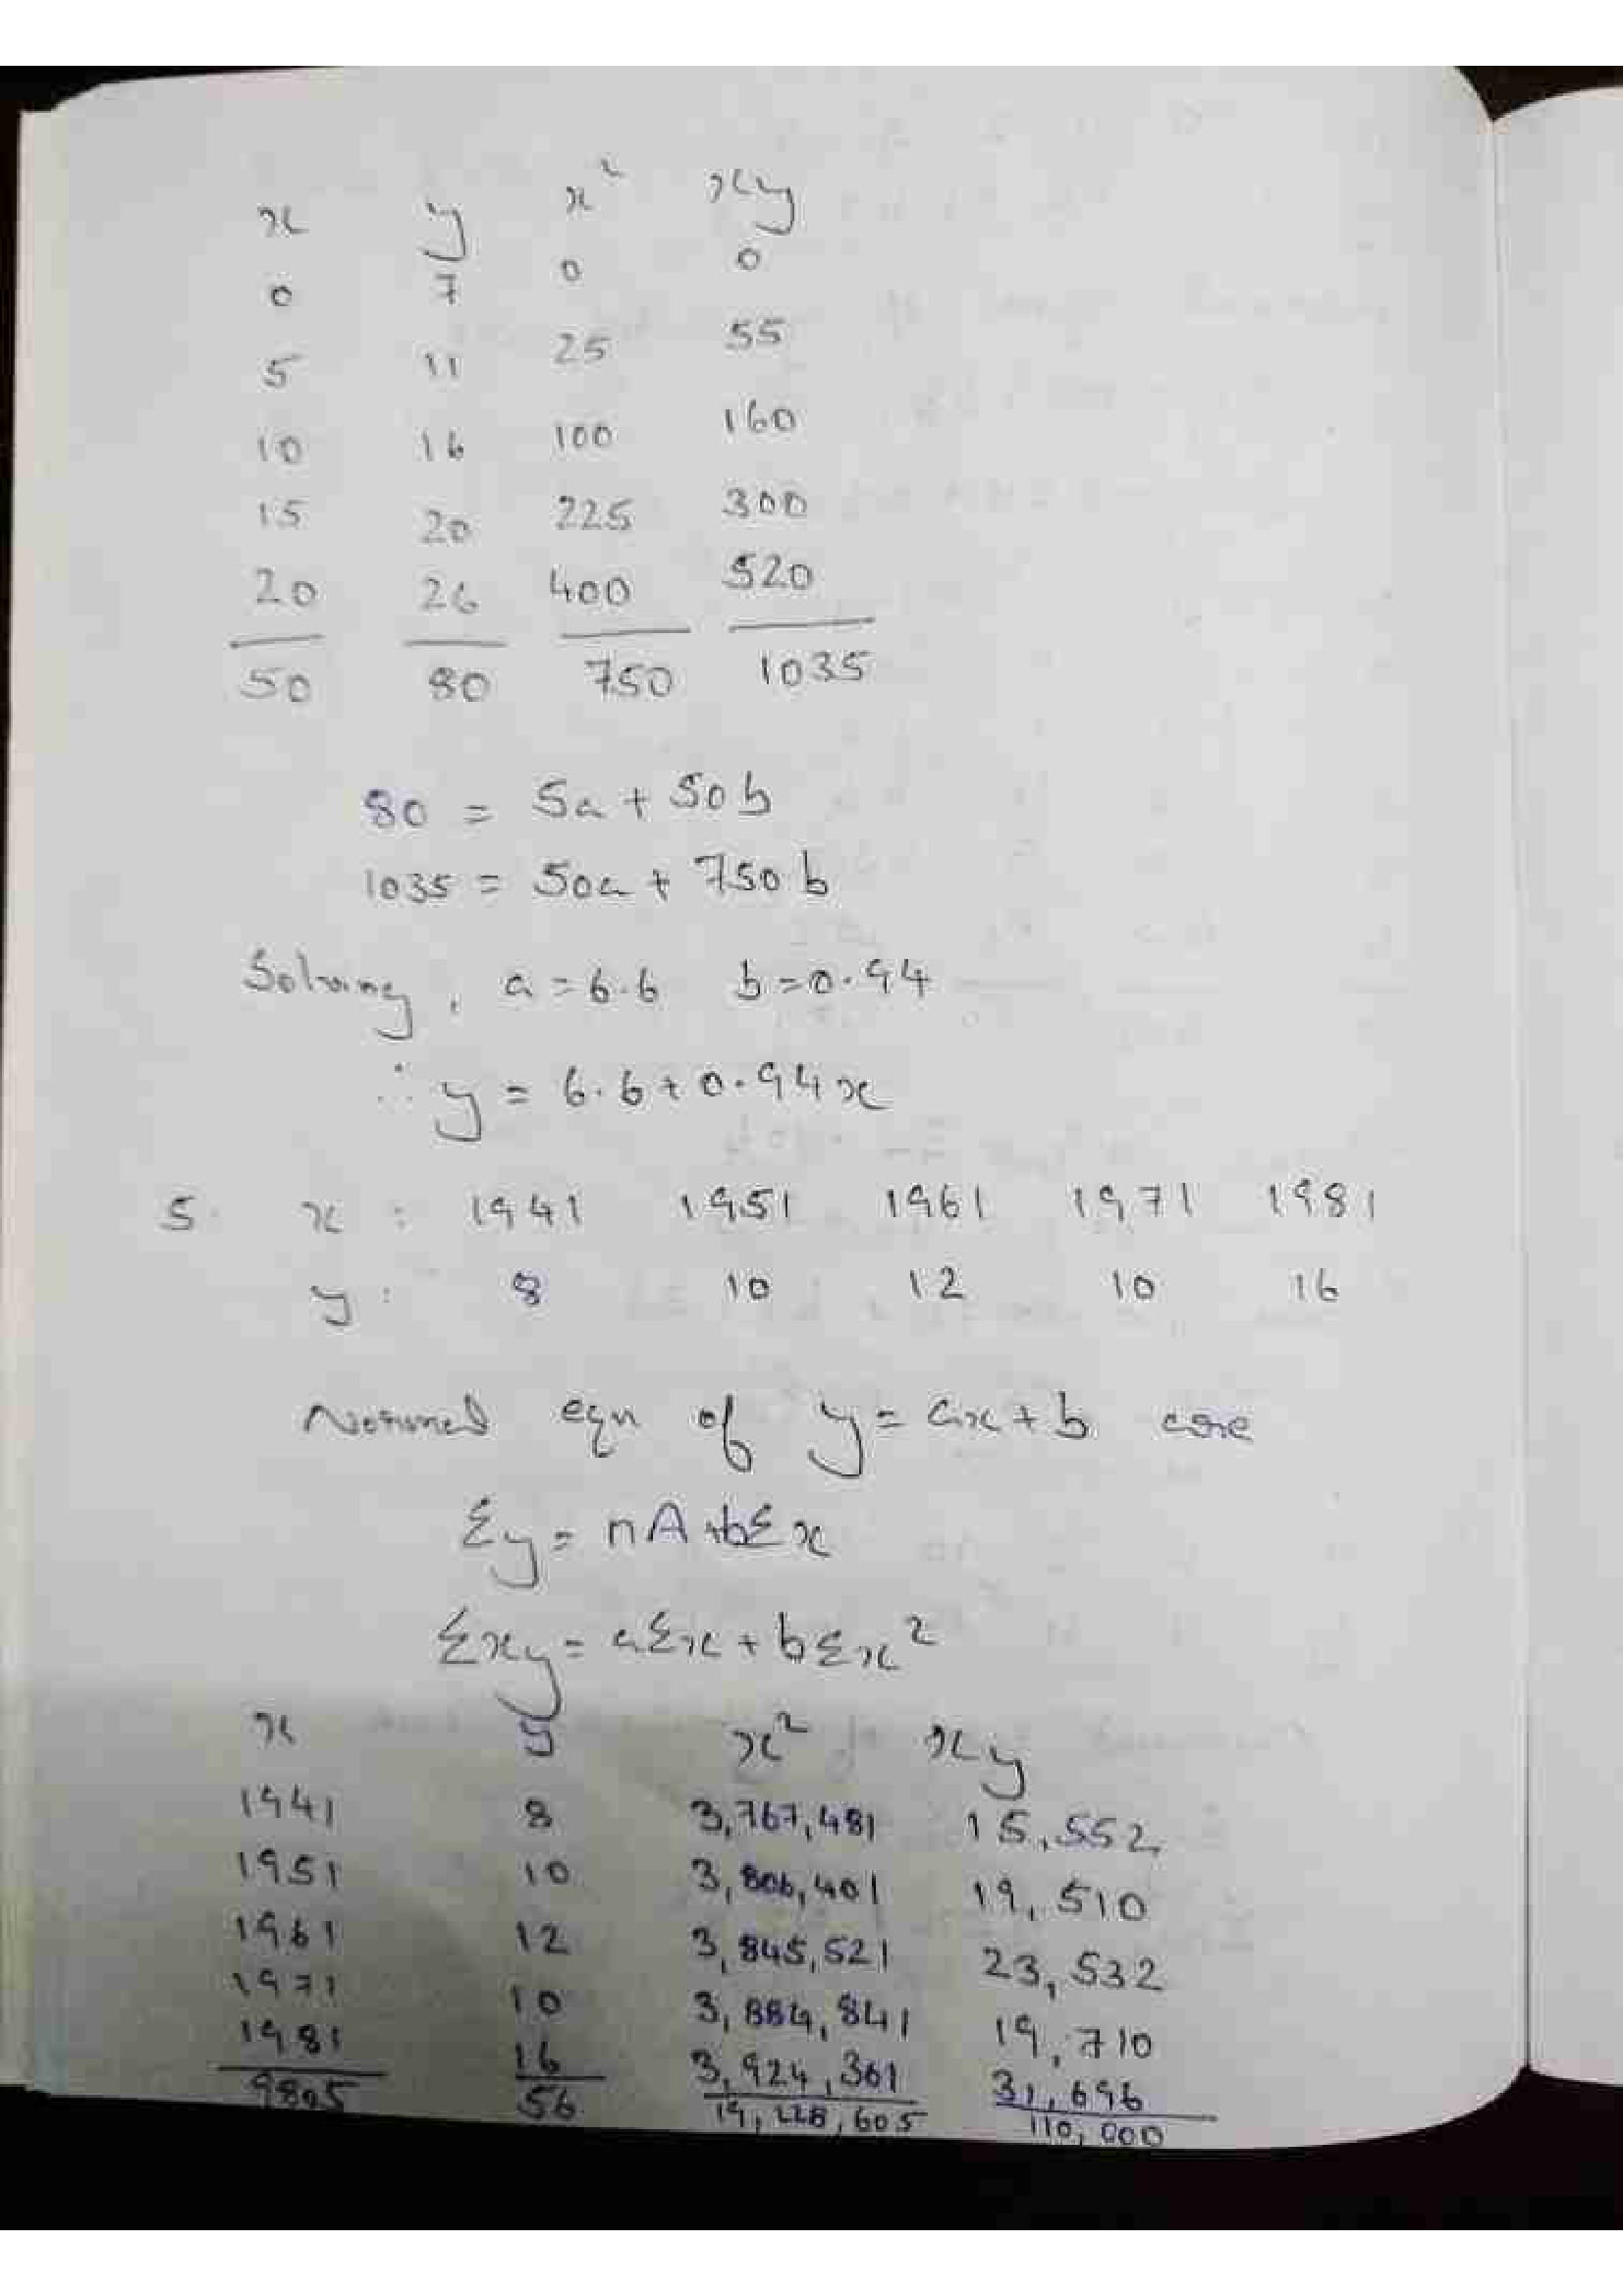 x y x² xy
0 7 0 0
5 11 25 55
10 16 100 160
15 20 225 300
20 26 400 520
50 80 750 1035
80 = 5a + 50b
1035 = 50a + 750b
Solving, a = 6.6 b = 0.94
∴ y = 6.6 + 0.94x
5. x : 1941 1951 1961 1971 1981
y : 8 10 12 10 16
Normal eqn of y = ax + b are
Σy = nA + bΣx
Σxy = aΣx + bΣx²
x y x² xy
1941 8 3,767,481 15,552
1951 10 3,806,401 19,510
1961 12 3,845,521 23,532
1971 10 3,884,841 19,710
1981 16 3,924,361 31,696
9805 56 19,228,605 110,000